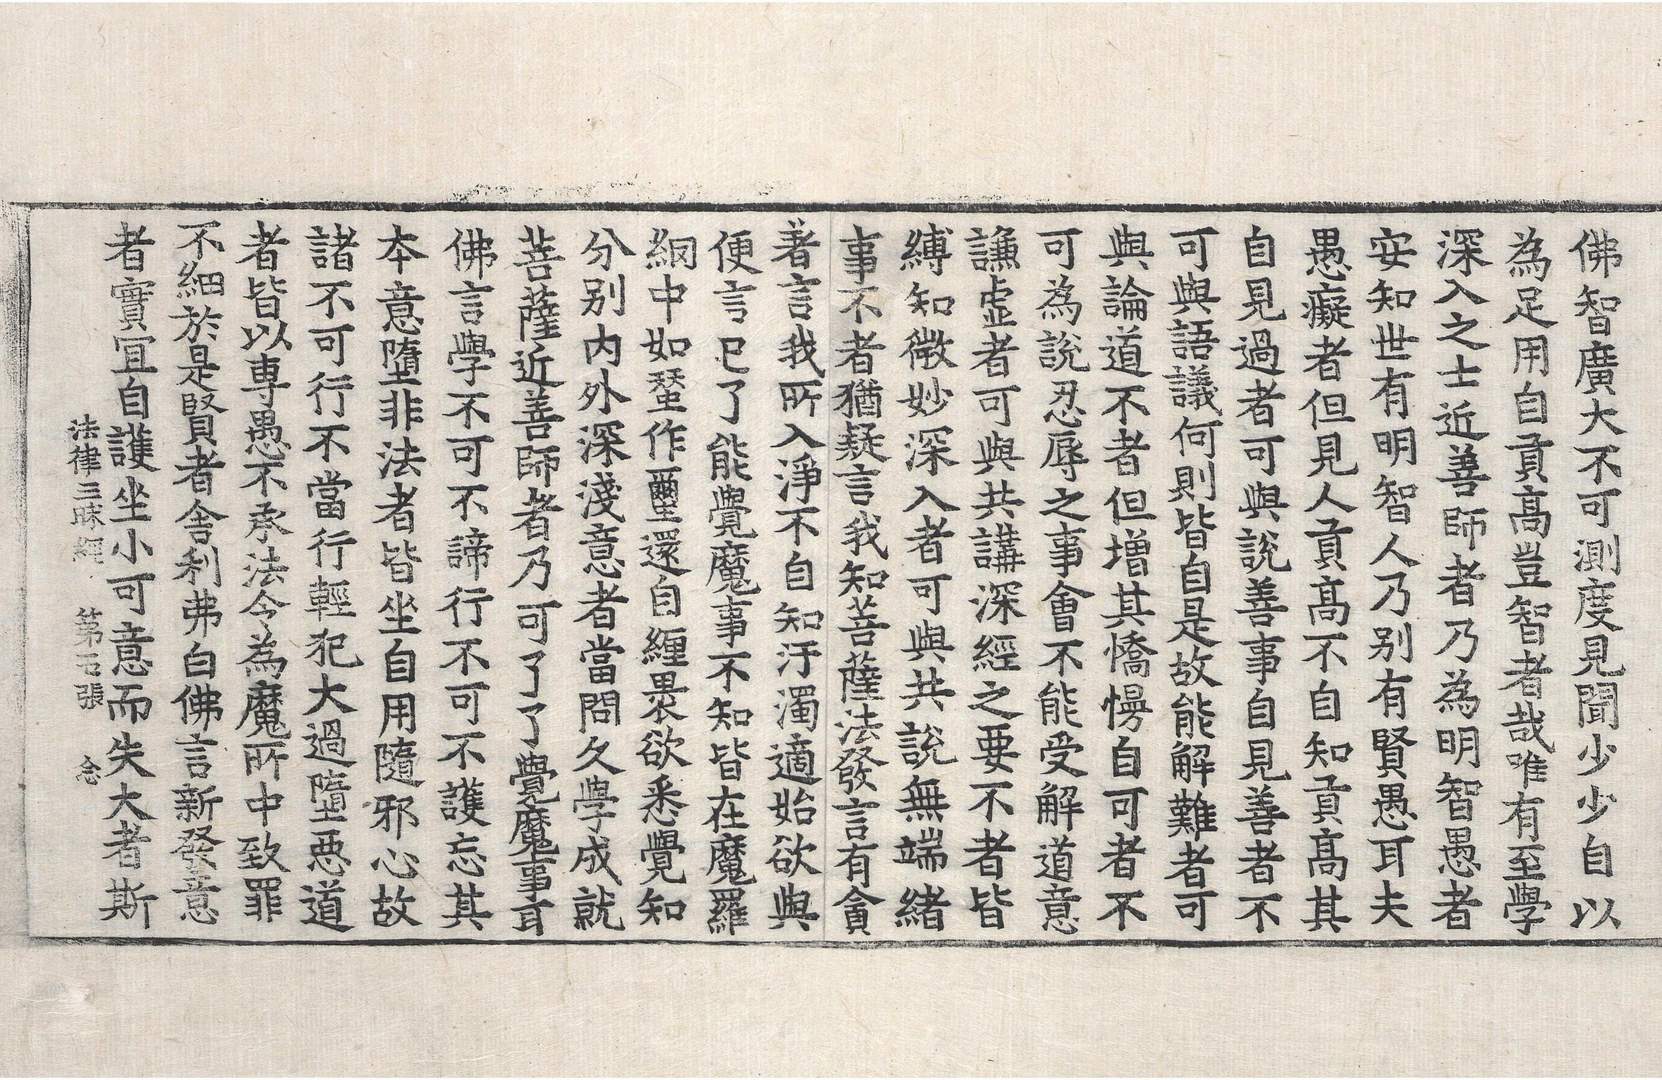 佛智廣大不可測度見聞少少自以
為足用自貢高豈智者哉唯有至學
深入之士近善師者乃為明智愚者
安知世有明智人乃別有賢愚耳夫
愚癡者但見人貢高不自知貢高其
自見過者可與說善事自見善者不
可與語議何則皆自是故能解難者可
與論道不者但增其憍慢自可者不
可為說忍辱之事會不能受解道意
謙虛者可與共講深經之要不者皆
縛知微妙深入者可與共說無端緒
事不者猶疑言我知菩薩法發言有貪
著言我所入淨不自知汙濁適始欲與
便言已了能覺魔事不知皆在魔羅
網中如蝅作壐還自纏裹欲悉覺知
分別內外深淺意者當問久學成就
菩薩近善師者乃可了了覺魔事耳
佛言學不可不諦行不可不護忘其
本意墮非法者皆坐自用隨邪心故
諸不可行不當行輕犯大過墮惡道
者皆以專愚不承法令為魔所中致罪
不細於是賢者舍利弗白佛言新發意
者實宜自護坐小可意而失大者斯
法律三昧經 第七張 念